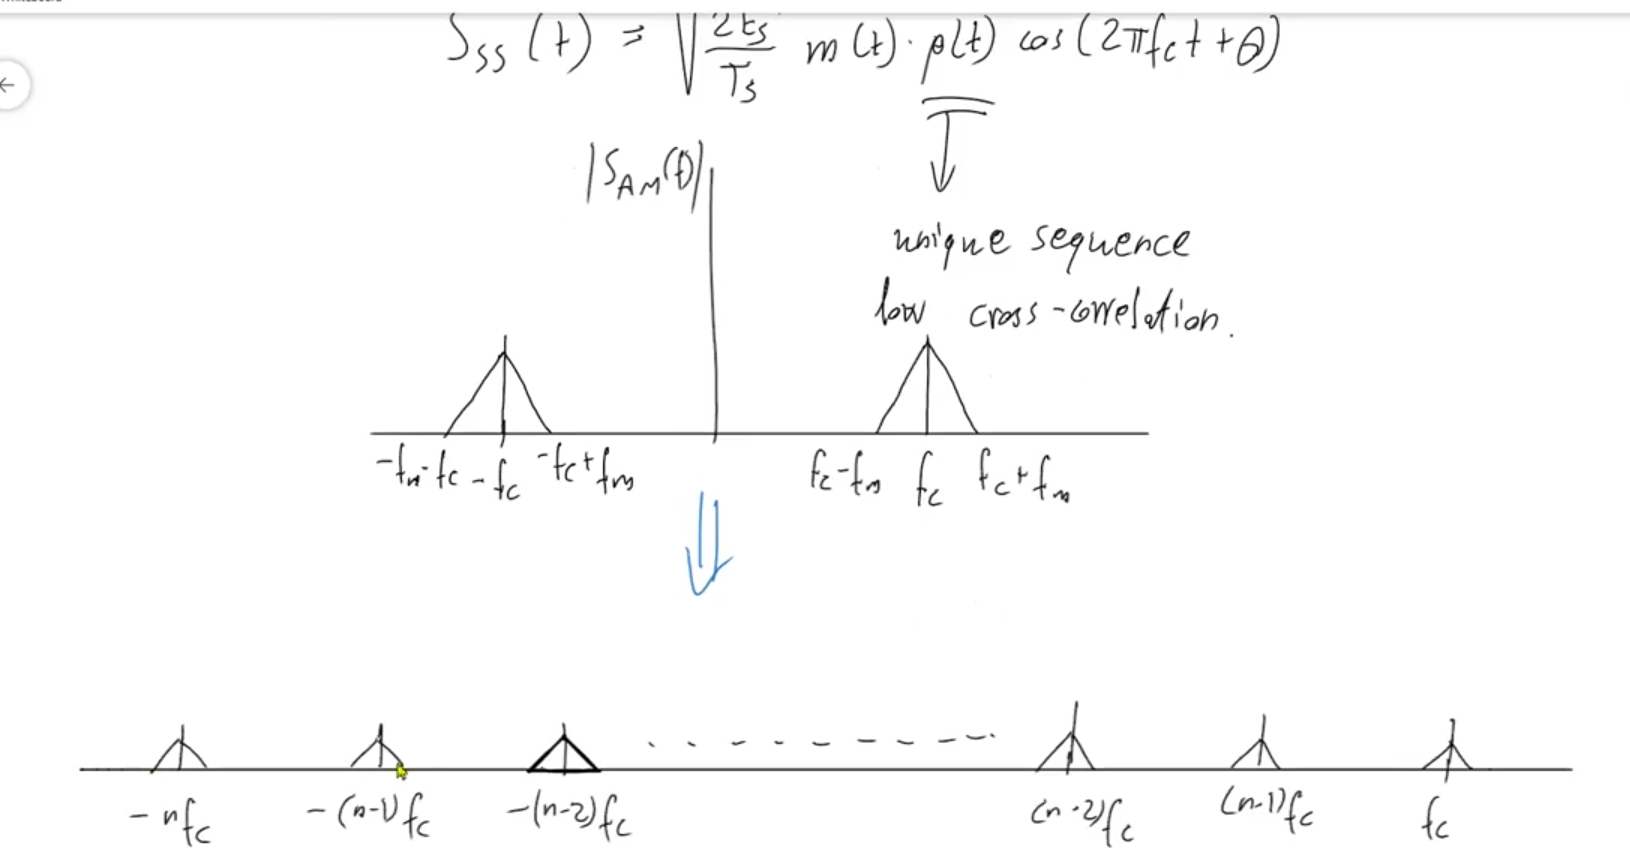 S_ss(t) = √(2Es/Ts) m(t)·p(t) cos(2πfct+θ)
|S_AM(f)|
unique sequence
low cross-correlation.
-fm-fc -fc -fc+fm fc-fm fc fc+fm
-nfc -(n-1)fc -(n-2)fc (n-2)fc (n-1)fc fc